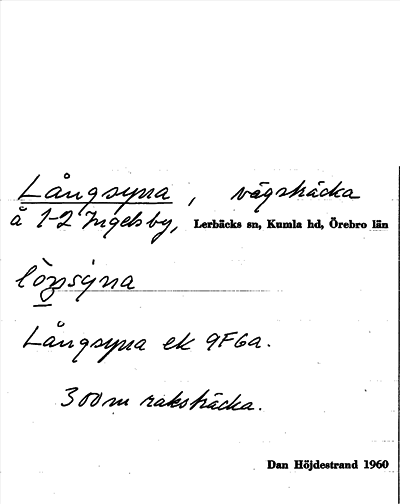 Långsyna, vägsträcka
å 1-2 Ingelsby, Lerbäcks sn, Kumla hd, Örebro län
Långsyna ek 9F6a.
300 m raksträcka.
Dan Höjdestrand 1960